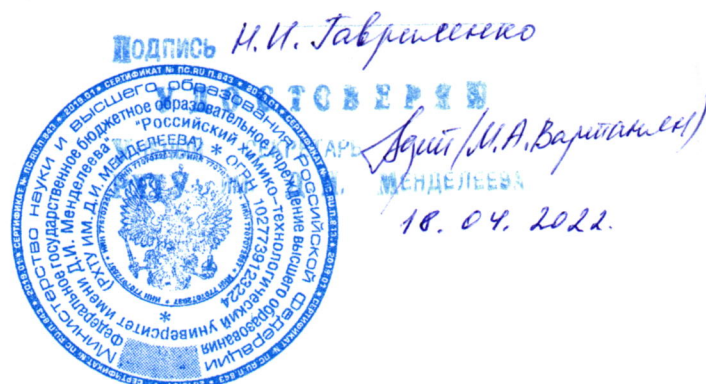 ПОДПИСЬ Н.И. Гавриленко
УДОСТОВЕРЯЮ
СЕКРЕТАРЬ (М.А. Вартанян)
РХТУ им. Д.И. МЕНДЕЛЕЕВА
18.04.2022.
Министерство науки и высшего образования Российской Федерации
Федеральное государственное бюджетное образовательное учреждение высшего образования
"Российский химико-технологический университет имени Д.И. Менделеева"
(РХТУ ИМ. Д.И. МЕНДЕЛЕЕВА) * ОГРН 1027739123224 *